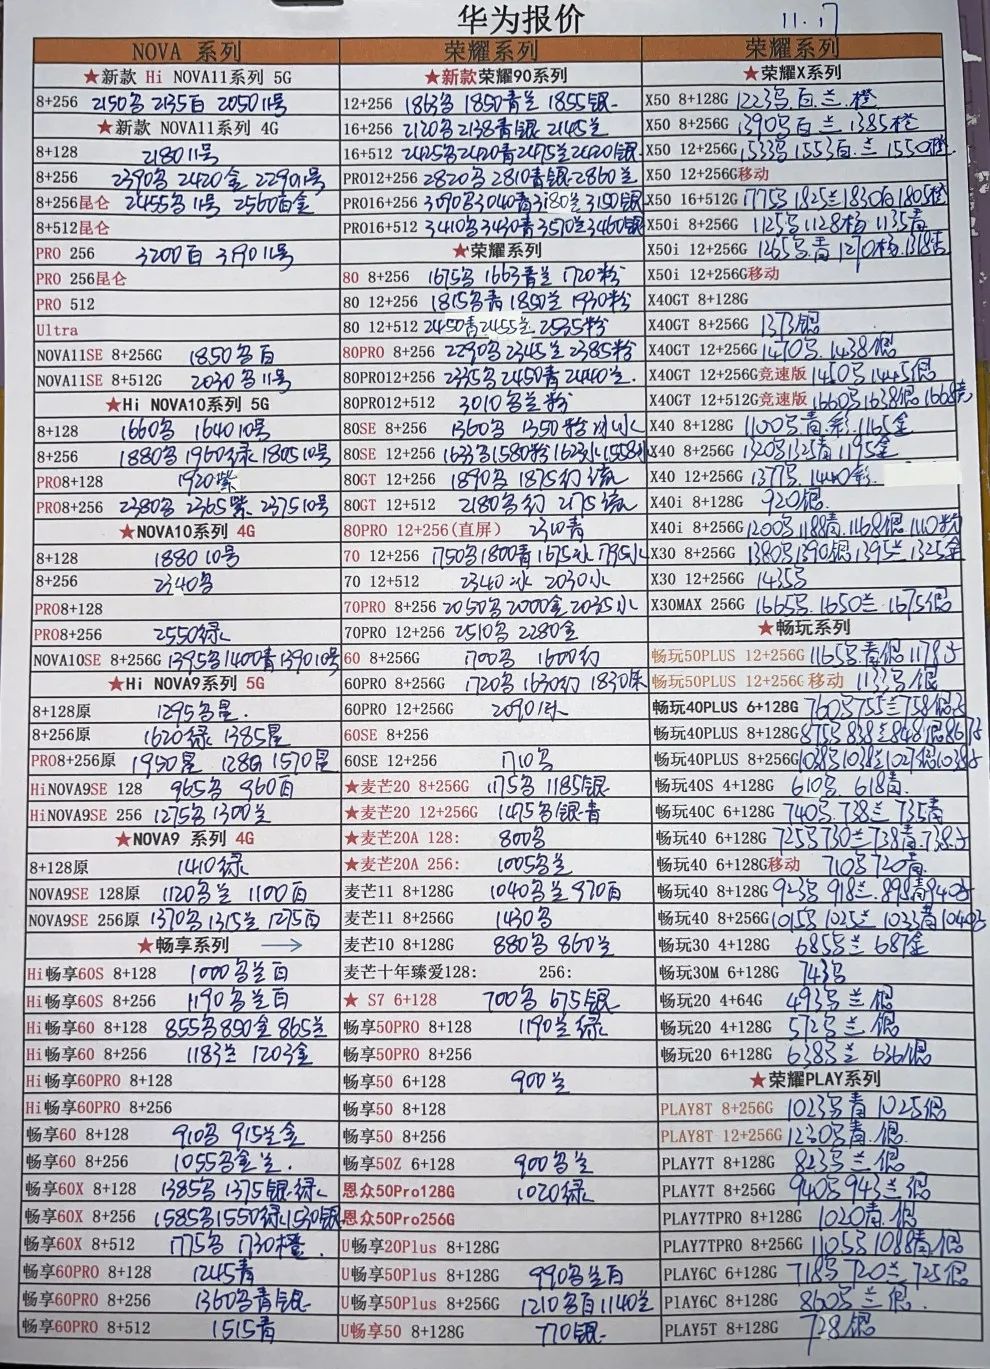 华为报价 11.17
NOVA 系列
★新款 Hi NOVA11系列 5G
8+256 2150名 2135白 2050 11号
★新款 NOVA11系列 4G
8+128 2180 11号
8+256 2390名 2420金 2290 11号
8+256昆仑 2455名 11号 2560白金
8+512昆仑
PRO 256 3200白 3190 11号
PRO 256昆仑
PRO 512
Ultra
NOVA11SE 8+256G 1850名白
NOVA11SE 8+512G 2030名 11号
★Hi NOVA10系列 5G
8+128 1660名 1640 10号
8+256 1880名 1960绿 1805 10号
PRO8+128 1920紫
PRO8+256 2380名 2365紫 2375 10号
★NOVA10系列 4G
8+128 1880 10号
8+256 2340名
PRO8+128
PRO8+256 2550绿
NOVA10SE 8+256G 1395名 1400青 1390 10号
★Hi NOVA9系列 5G
8+128原 1295名星
8+256原 1620绿 1385星
PRO8+256原 1950星 128G 1570星
HiNOVA9SE 128 965名 960白
HiNOVA9SE 256 1275名 1300兰
★NOVA9 系列 4G
8+128原 1410绿
NOVA9SE 128原 1120名兰 1100白
NOVA9SE 256原 1370名 1315兰 1275白
★畅享系列 →
Hi畅享60S 8+128 1000名兰白
Hi畅享60S 8+256 1190名兰白
Hi畅享60 8+128 855名 890金 865兰
Hi畅享60 8+256 1183兰 1203金
Hi畅享60PRO 8+128
Hi畅享60PRO 8+256
畅享60 8+128 910名 915兰金
畅享60 8+256 1055名金兰
畅享60X 8+128 1385名 1375银绿
畅享60X 8+256 1585名 1550绿 1530银
畅享60X 8+512 1775名 1730橙
畅享60PRO 8+128 1245青
畅享60PRO 8+256 1360名青银
畅享60PRO 8+512 1515青
荣耀系列
★新款荣耀90系列
12+256 1863名 1850青兰 1855银
16+256 2120名 2138青银 2145兰
16+512 2425名 2420青 2475兰 2420银
PRO12+256 2820名 2810青银 2860兰
PRO16+256 3090名 3040青 3180兰 3150银
PRO16+512 3410名 3430青 3570兰 3460银
★荣耀系列
80 8+256 1675名 1663青兰 1720粉
80 12+256 1815名青 1850兰 1930粉
80 12+512 2450青 2455兰 2535粉
80PRO 8+256 2290名 2345兰 2385粉
80PRO12+256 2335名 2450青 2440兰
80PRO12+512 3010名兰粉
80SE 8+256 1360名 1350粉
80SE 12+256 1633名 1580粉
80GT 12+256 1890名 1875幻流
80GT 12+512 2180名幻 2175流
80PRO 12+256(直屏) 2310青
70 12+256 1750名 1800青 1675冰
70 12+512 2340冰 2030水
70PRO 8+256 2050名 2000金 2035水
70PRO 12+256 2510名 2280金
60 8+256G 1700名 1600幻
60PRO 8+256G 1720名 1630幻 1830保
60PRO 12+256G 2090
60SE 8+256
60SE 12+256 1710名
★麦芒20 8+256G 1175名 1185银
★麦芒20 12+256G 1475名银青
★麦芒20A 128: 800名
★麦芒20A 256: 1005名兰
麦芒11 8+128G 1040名兰 970白
麦芒11 8+256G 1430名
麦芒10 8+128G 880名 860兰
麦芒十年臻爱128: 256:
★ S7 6+128 700名 675银
畅享50PRO 8+128 1190兰绿
畅享50PRO 8+256
畅享50 6+128 900兰
畅享50 8+128
畅享50 8+256
畅享50Z 6+128 900名兰
恩众50Pro128G 1020绿
恩众50Pro256G
U畅享20Plus 8+128G
U畅享50Plus 8+128G 990名兰白
U畅享50Plus 8+256G 1210名白 1140兰
U畅享50 8+128G 770银
荣耀系列
★荣耀X系列
X50 8+128G 1223名.白.兰.橙
X50 8+256G 1390名白兰 1385橙
X50 12+256G 1533名 1553白.兰 1550橙
X50 12+256G移动
X50 16+512G 1775名 1825兰 1830白 1805橙
X50i 8+256G 1125名 1128杨 1135青
X50i 12+256G 1265名.青 1270杨
X50i 12+256G移动
X40GT 8+128G
X40GT 8+256G 1373银
X40GT 12+256G 1410名. 1438银
X40GT 12+256G竞速版 1450名 1445银
X40GT 12+512G竞速版 1660名 1638银
X40 8+128G 1100名青.彩. 1165金
X40 8+256G 1320名 1325青 1195金
X40 12+256G 1377名. 1440彩.
X40i 8+128G 920银
X40i 8+256G 1200名 1188青 1168银 1110粉
X30 8+256G 1380名 1390银 1395兰 1325金
X30 12+256G 1435名
X30MAX 256G 1665名. 1650兰. 1675银
★畅玩系列
畅玩50PLUS 12+256G 1165名.青银 1178
畅玩50PLUS 12+256G 移动 1133名银
畅玩40PLUS 6+128G 760名 755兰 758银
畅玩40PLUS 8+128G 875名 838兰 848银
畅玩40PLUS 8+256G 1038名 1038兰 1027银
畅玩40S 4+128G 610名. 618青
畅玩40C 6+128G 740名. 738兰 735青
畅玩40 6+128G 725名 730兰 738青
畅玩40 6+128G移动 710名 720青
畅玩40 8+128G 923名 918兰. 898青
畅玩40 8+256G 1015名 1025兰 1023青
畅玩30 4+128G 685名兰 687金
畅玩30M 6+128G 743名
畅玩20 4+64G 493名兰银
畅玩20 4+128G 572名兰银
畅玩20 6+128G 638名兰 636银
★荣耀PLAY系列
PLAY8T 8+256G 1023名青 1025银
PLAY8T 12+256G 1230名青.银
PLAY7T 8+128G 823名兰.银
PLAY7T 8+256G 940名 943兰银
PLAY7TPRO 8+128G 1020青.银
PLAY7TPRO 8+256G 1105名 1088青银
PLAY6C 6+128G 718名 720兰 725银
PlAY6C 8+128G 860名兰.银
PLAY5T 8+128G 728银